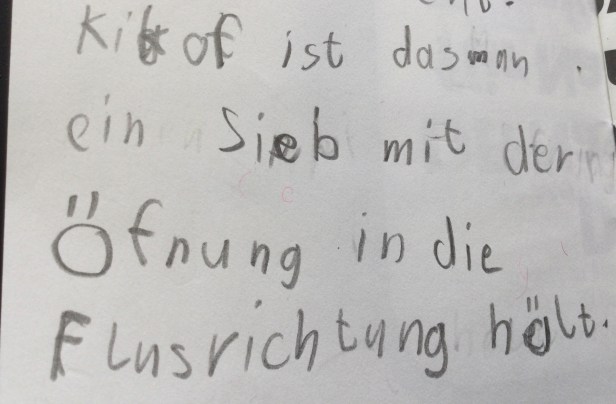 Kikof ist dasman
ein Sieb mit der
Öfnung in die
Flusrichtung hält.